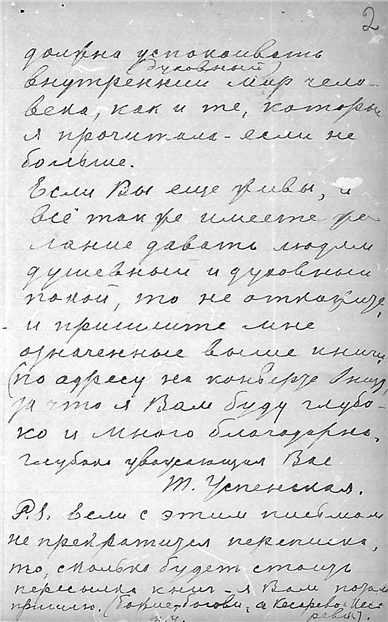 2
должна успокоивать
(духовный)
внутренний мир чело-
века, как и те, которые
я прочитала - если не
больше.
Если Вы еще живы, и
всё также имеете же-
лание давать людям
душевный и духовный
покой, то не откажите,
и пришлите мне
означенные выше книги
(по адресу на конверте внизу,
за что я Вам буду глубо-
ко и много благодарна.
Глубоко уважающая Вас
Т. Успенская.
P.S. Если с этим письмом
не прекратится переписка,
то, сколько будет стоить
пересылка книг - я Вам потом
пришлю. (Божие - Богови, а Кесарево - Кеса-
реви).